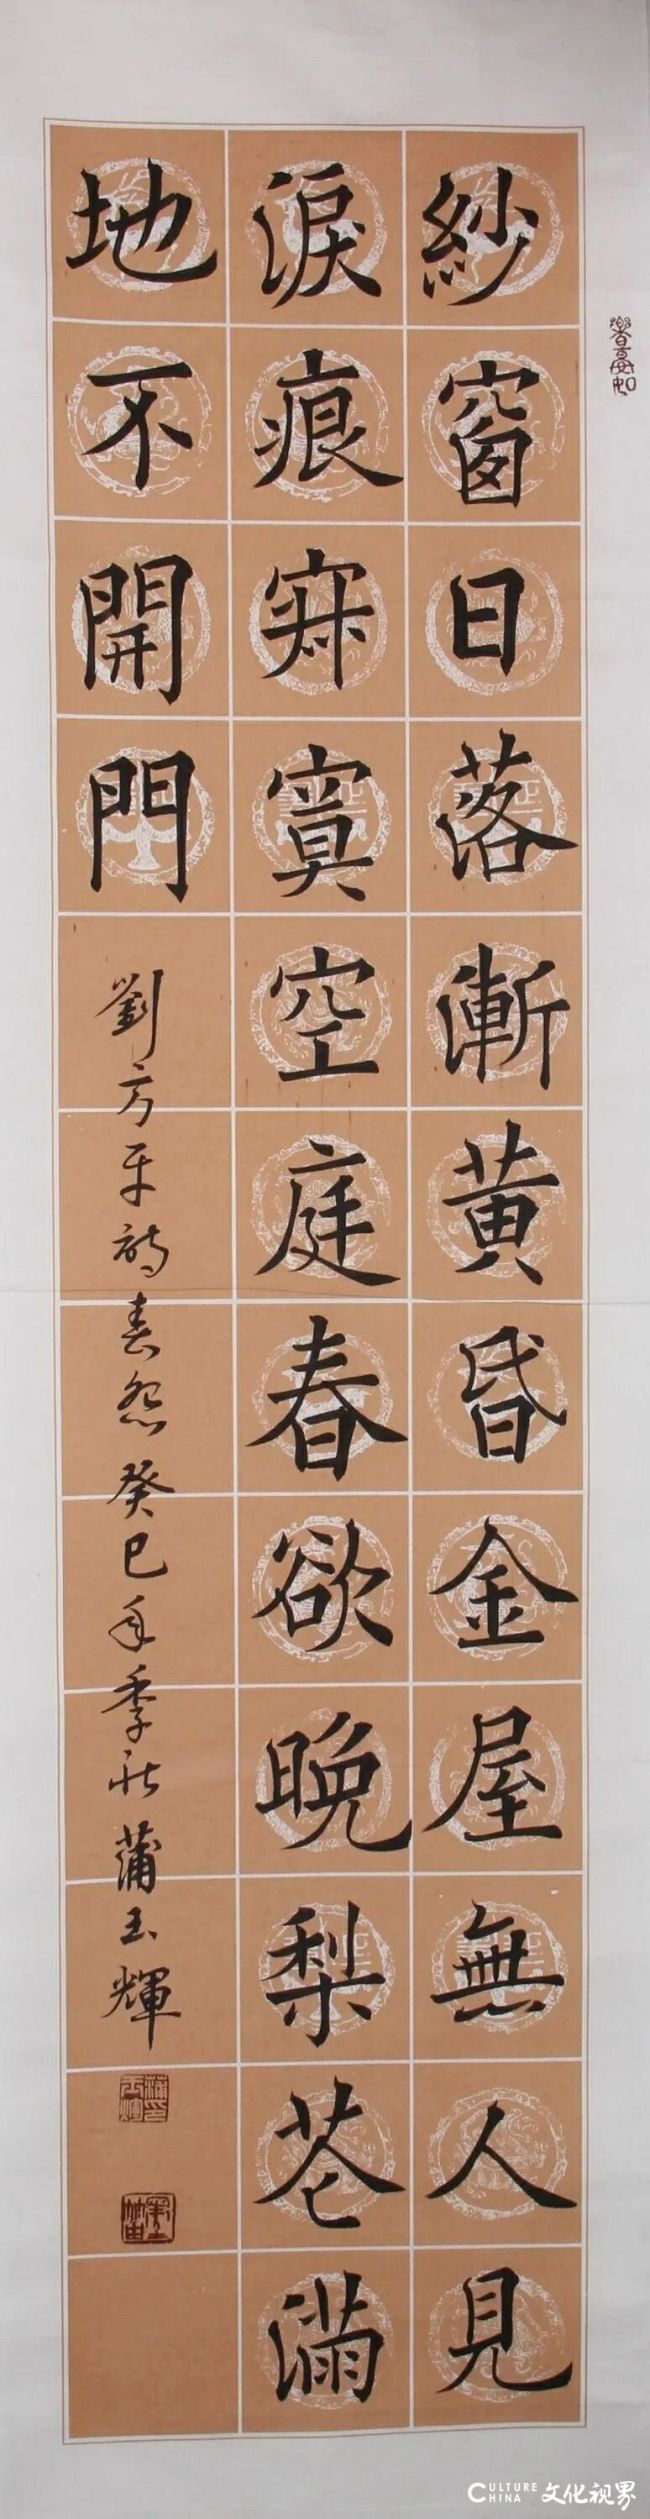 紗窗日落漸黄昏金屋無人見
淚痕寂寞空庭春欲晚梨花滿
地不開門
劉方平詩春怨癸巳年季秋蒲玉輝
CULTURE CHINA 文化视界